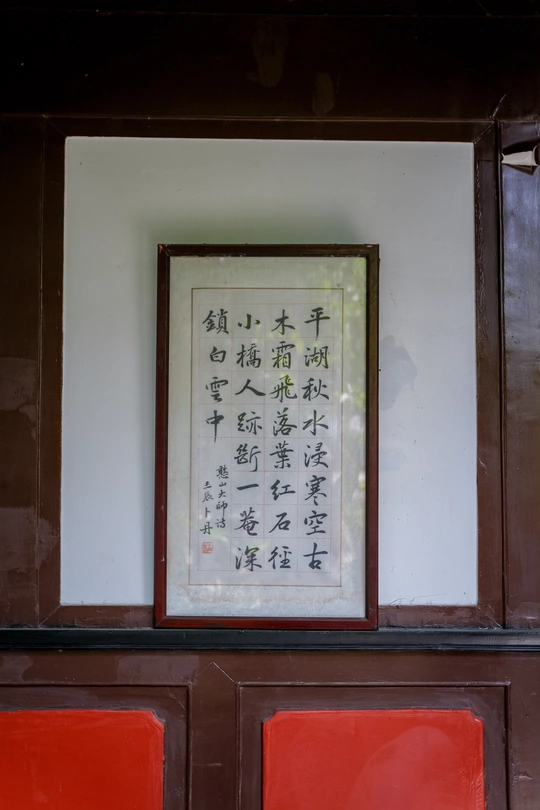 平湖秋水浸寒空古
木霜飛落葉紅石徑
小橋人跡斷一菴深
鎖白雲中
憨山大師詩
壬辰卜丹